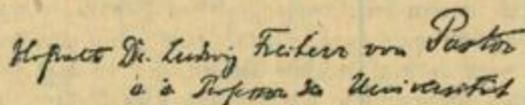 Hofrath Dr. Ludwig Freiherr von Pastor
ö. ö. Professor der Universität